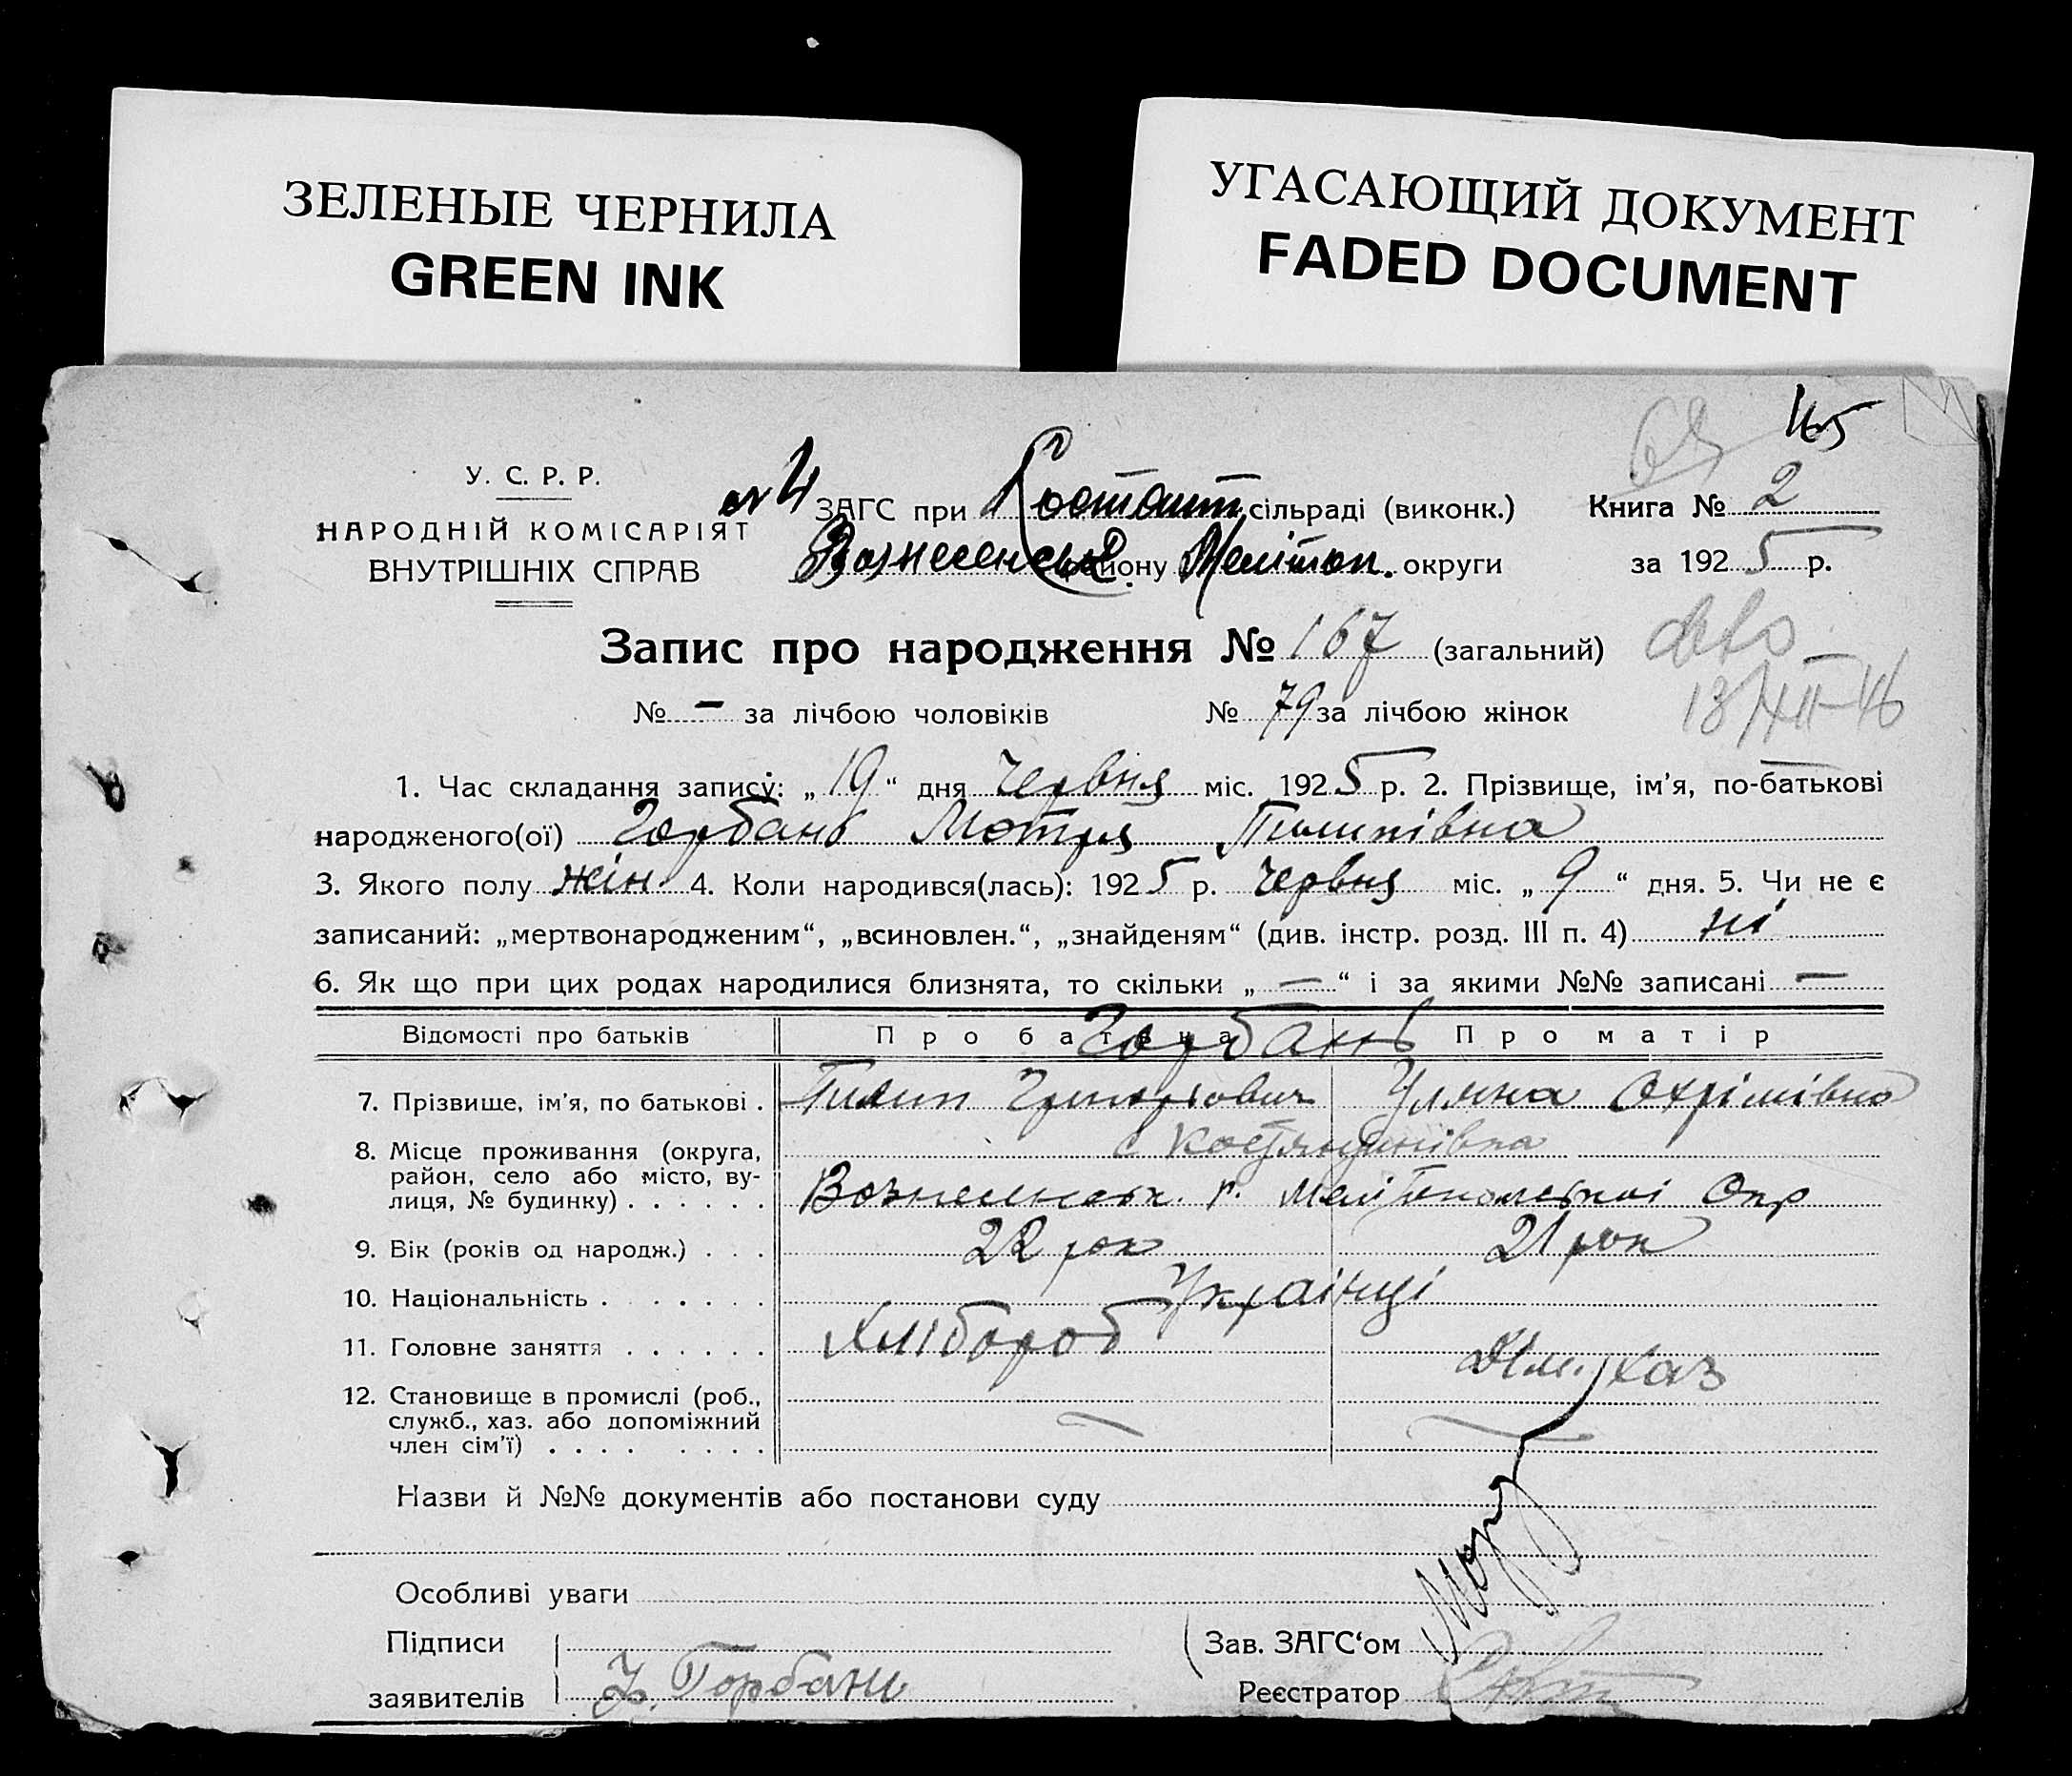 ЗЕЛЕНЫЕ ЧЕРНИЛА
GREEN INK
УГАСАЮЩИЙ ДОКУМЕНТ
FADED DOCUMENT
165
У. С. Р. Р.
НАРОДНІЙ КОМІСАРІЯТ
ВНУТРІШНІХ СПРАВ
ЗАГС при Костант. сільраді (виконк.)
Вознесенськ району Меліт­оп. округи
Книга № 2
за 1925 р.
Запис про народження № 167 (загальний)
№ – за лічбою чоловіків № 79 за лічбою жінок
13/XII-46
1. Час складання запису: „19“ дня Червня міс. 1925 р. 2. Прізвище, ім'я, по-батькові
народженого(ої) Горбань Мотря Пилипівна
3. Якого полу жін 4. Коли народився(лась): 1925 р. Червня міс. „9“ дня. 5. Чи не є
записаний: „мертвонародженим“, „всиновлен.“, „знайденям“ (див. інстр. розд. III п. 4) ні
6. Як що при цих родах народилися близнята, то скільки „—“ і за якими №№ записані —
Відомості про батьків Про батька Про матір
Горбань
7. Прізвище, ім'я, по батькові . Пилип Григорович Уляна Охрімівна
8. Місце проживання (округа, район, село або місто, вулиця, № будинку) . . . . . .
с Костянтинівка
Вознесенськ. р. Мелітопольскоі Окр
9. Вік (років од народж.) . . . 22 рок 21 рок
10. Національність . . . . . . Українці
11. Головне заняття . . . . . . Хлібороб Дом. хаз
12. Становище в промислі (роб.,
служб., хаз. або допоміжний
член сім'ї) . . . . . . . .
Назви й №№ документів або постанови суду
Особливі уваги
Підписи
заявителів Горбань
Зав. ЗАГС‘ом
Реєстратор